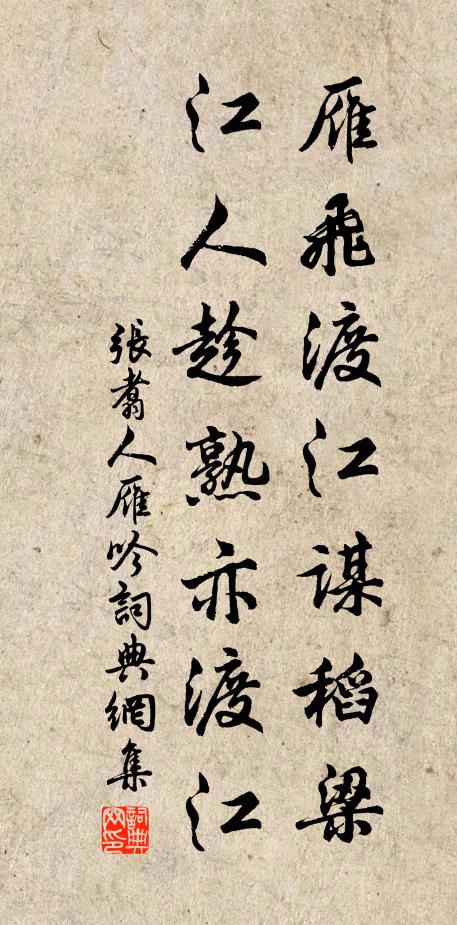 雁飛渡江謀稻梁
江人趁熟亦渡江
張翥人雁吟詞典網集
詞典网印